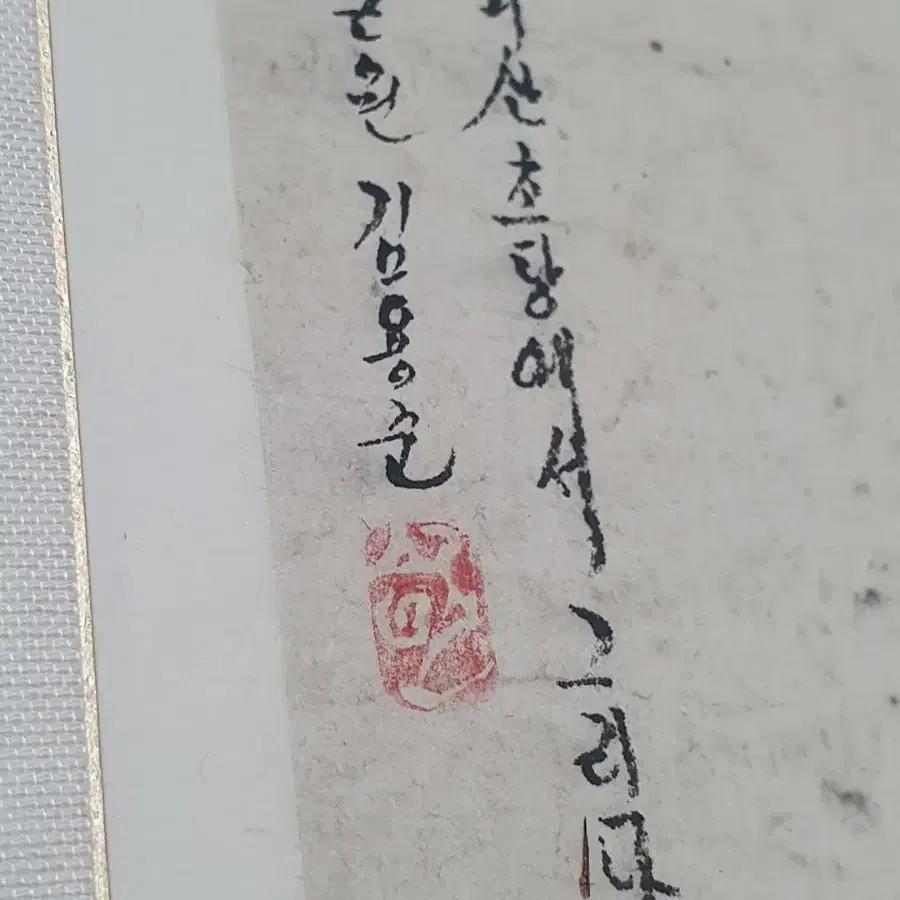 산 초당에서 그리다
원 김용준